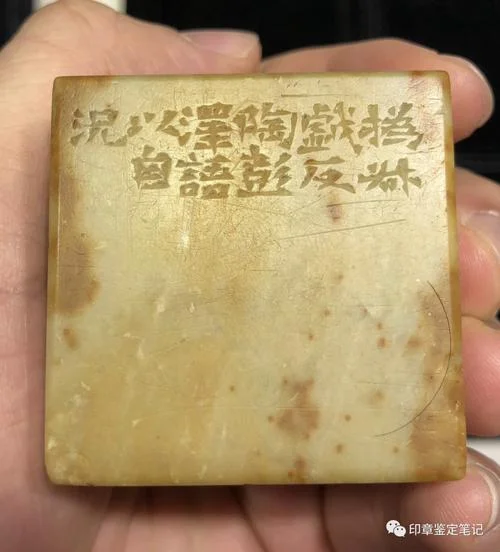 撝叔
戲反
陶彭
澤語
以自
況
印章鉴定笔记